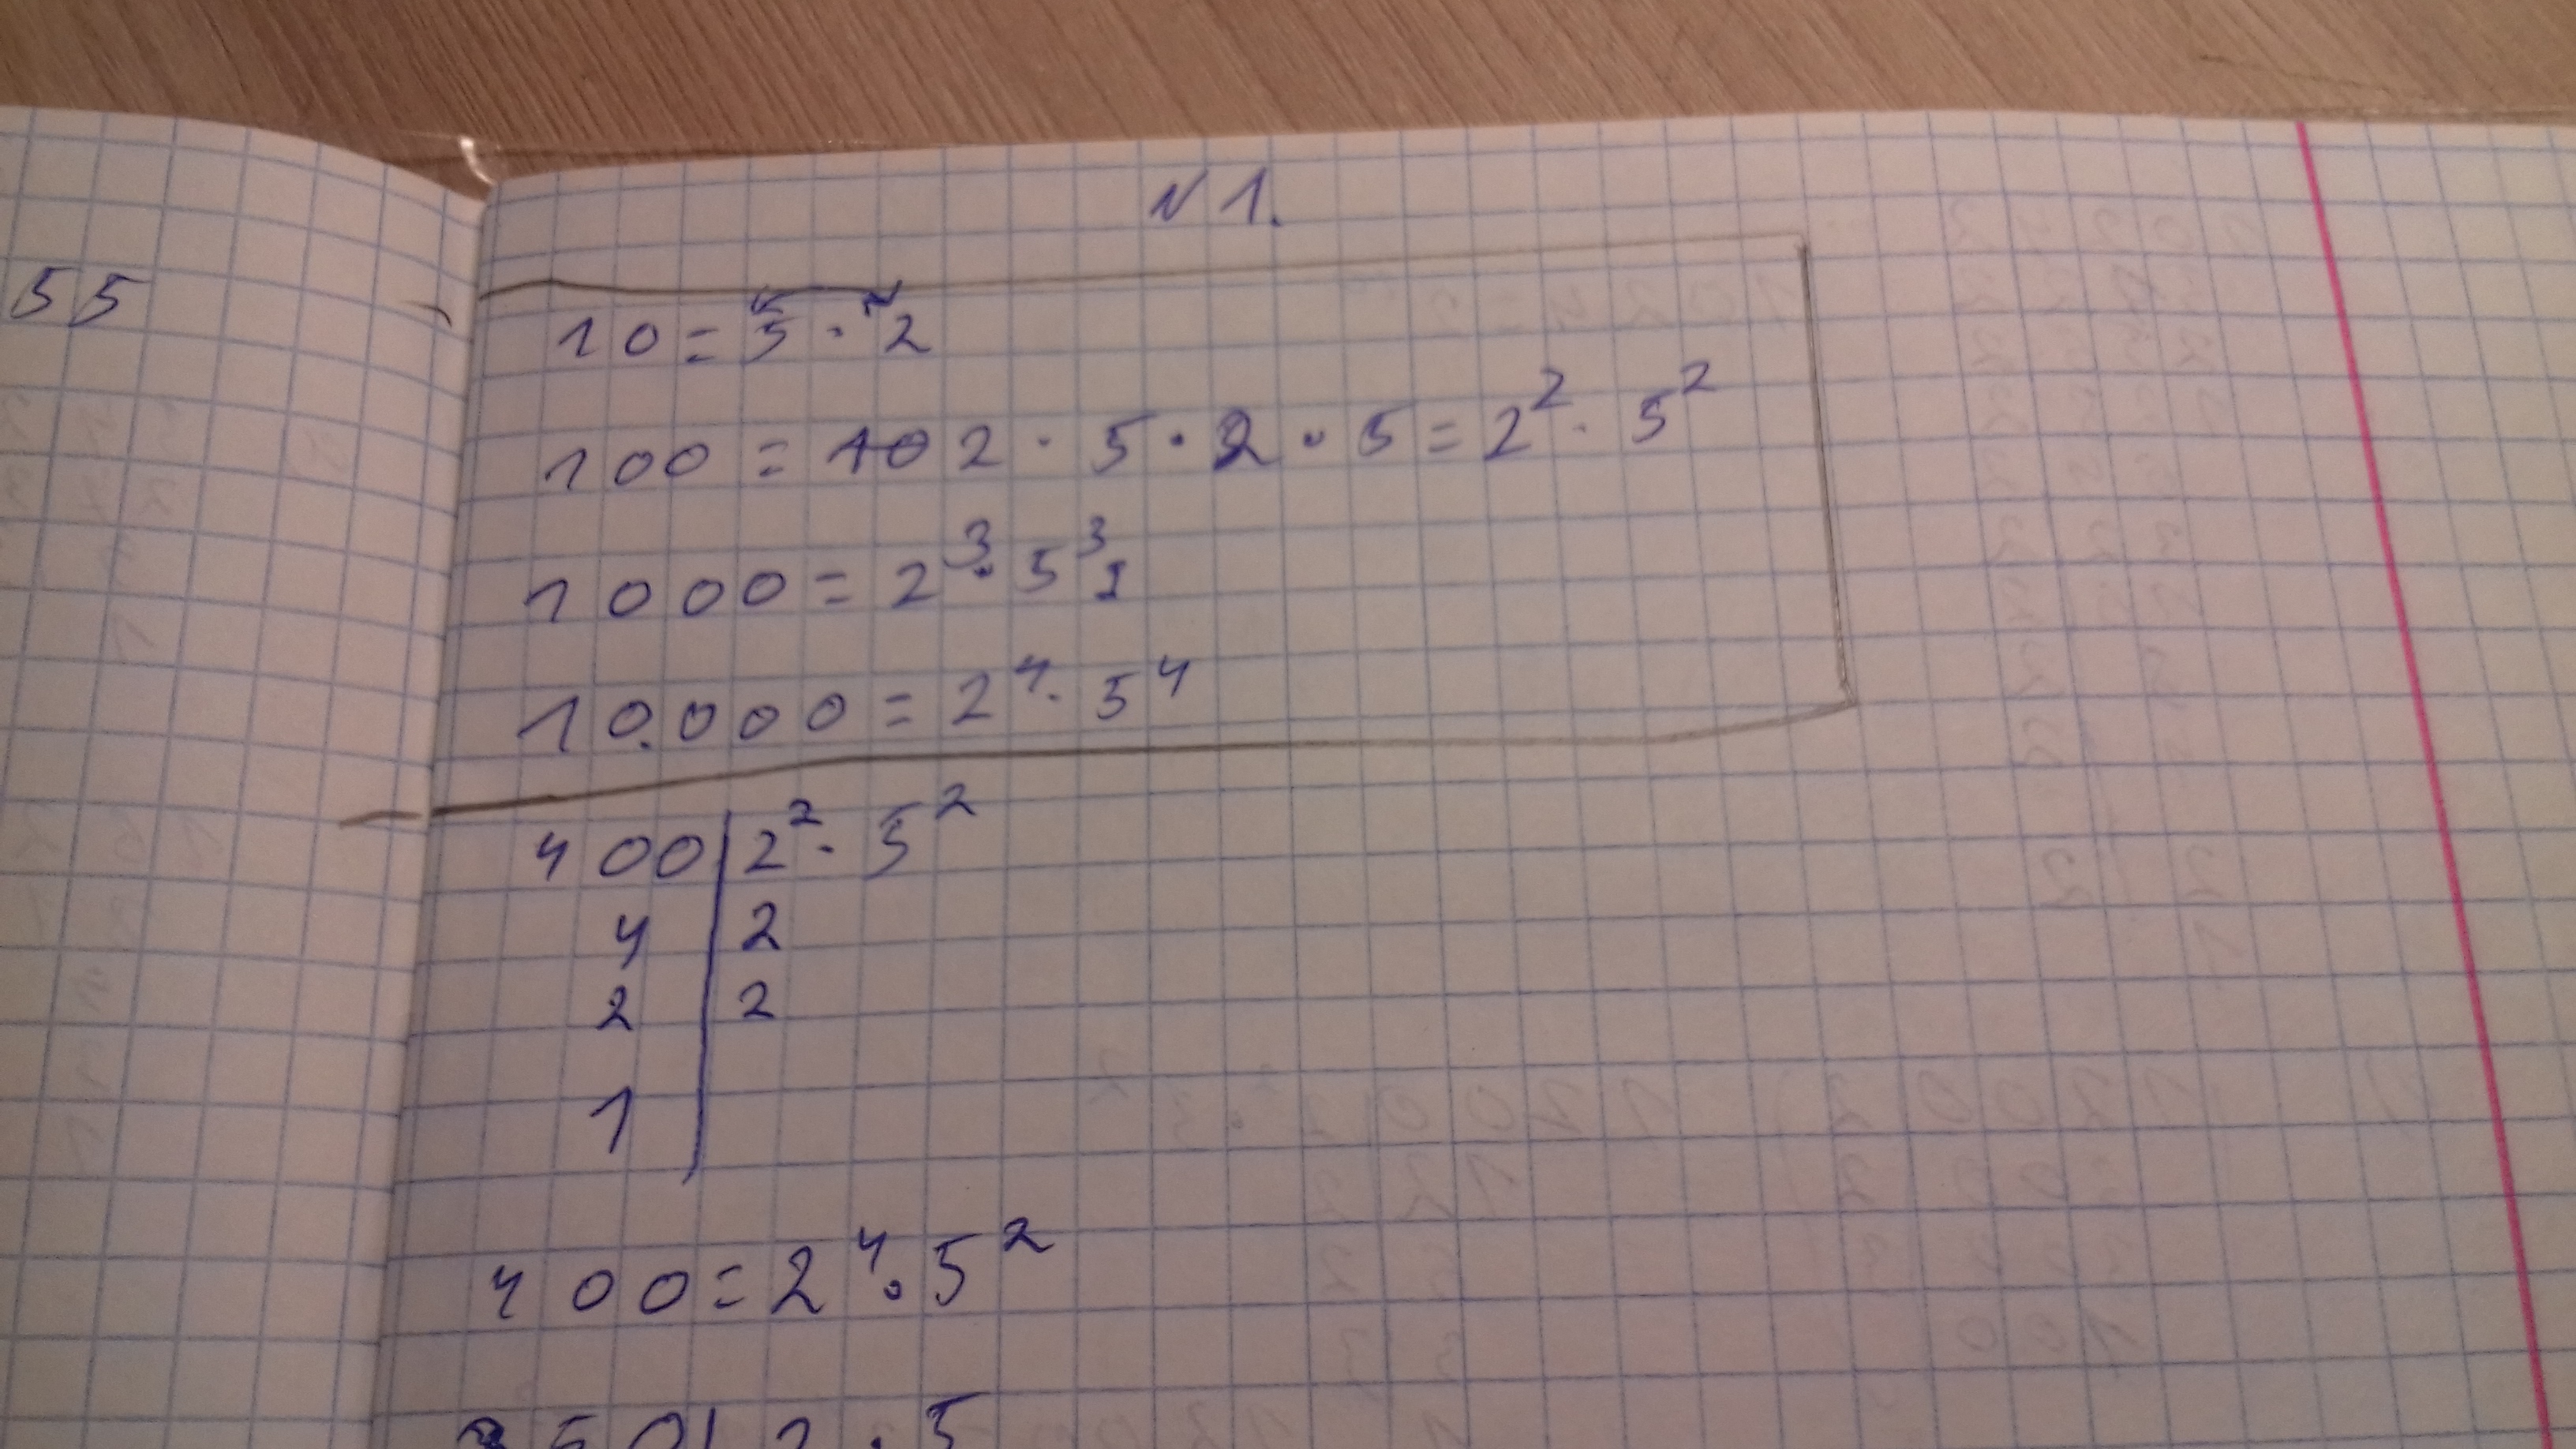 55
N 1.
10 = 5 · 2
100 = 10 2 · 5 · 2 · 5 = 2² · 5²
1000 = 2³ · 5³
10.000 = 2⁴ · 5⁴
400 | 2² · 5²
4 | 2
2 | 2
1 |
400 = 2⁴ · 5²
350 | 2 · 5